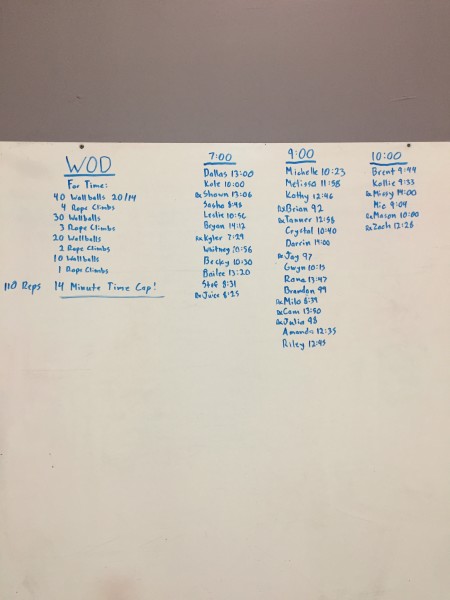 WOD
For Time:
40 Wallballs 20/14
4 Rope Climbs
30 Wallballs
3 Rope Climbs
20 Wallballs
2 Rope Climbs
10 Wallballs
1 Rope Climbs
110 Reps 14 Minute Time Cap!
7:00
Dallas 13:00
Kole 10:00
Rx Shawn 13:06
Sasha 8:48
Leslie 10:56
Bryan 14:12
Rx Kyler 7:29
Whitney 10:56
Becky 10:30
Bailee 13:20
Stef 8:31
Rx Juice 8:25
9:00
Michelle 10:23
Melissa 11:58
Kathy 12:46
Rx Brian 92
Rx Tanner 12:58
Crystal 10:40
Darrin 14:00
Rx Jay 97
Gwyn 10:13
Rana 13:47
Brandon 99
Rx Milo 8:39
Rx Cam 13:50
Rx Julia 98
Amanda 12:35
Riley 12:45
10:00
Brent 9:44
Kallie 9:33
Rx Missy 14:00
Mic 9:04
Rx Mason 10:00
Rx Zach 12:26